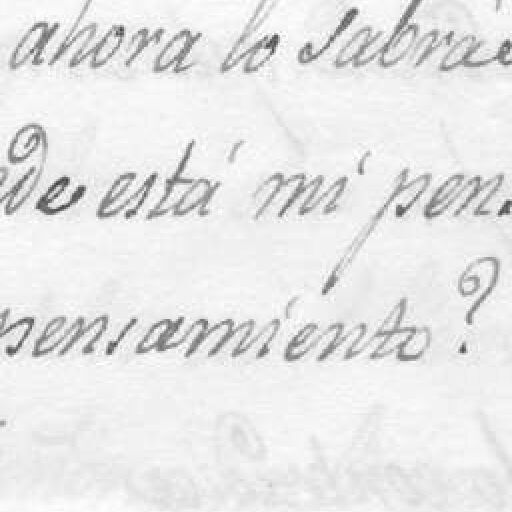 ahora lo sabrás
ede está mi pen
pensamiento?